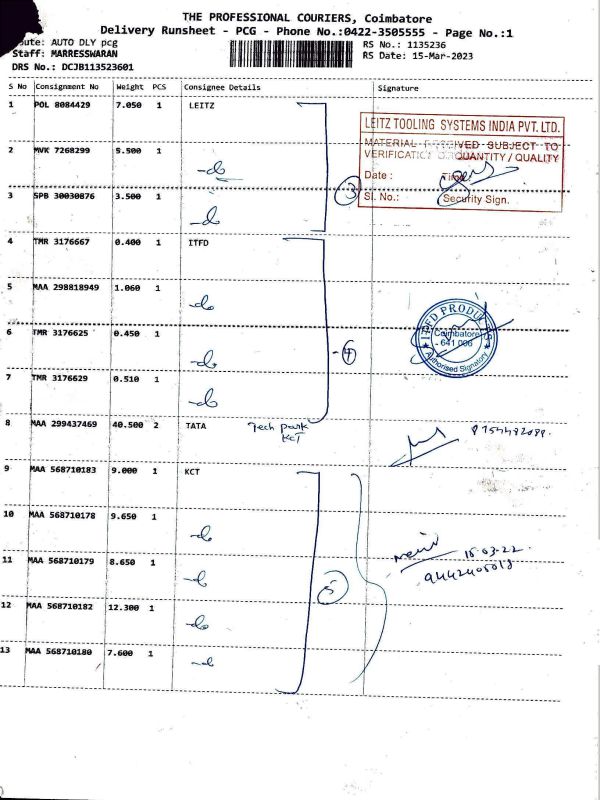 THE PROFESSIONAL COURIERS, Coimbatore
Delivery Runsheet - PCG - Phone No.:0422-3505555 - Page No.:1
oute: AUTO DLY pcg RS No.: 1135236
Staff: MARRESSWARAN RS Date: 15-Mar-2023
DRS No.: DCJB113523601
S No Consignment No Weight PCS Consignee Details Signature
1 POL 8084429 7.050 1 LEITZ
LEITZ TOOLING SYSTEMS INDIA PVT. LTD.
MATERIAL RECEIVED SUBJECT TO
VERIFICATION OF QUANTITY / QUALITY
Date : Time
Sl. No.: Security Sign.
2 MVK 7268299 5.500 1 -do
3 SPB 30030876 3.500 1 -do 3
4 TMR 3176667 0.400 1 ITFD
5 MAA 298818949 1.060 1 -do
ITFD PRODUCTS
Coimbatore
- 641 006
Authorised Signatory
6 TMR 3176625 0.450 1 -do - 4
7 TMR 3176629 0.510 1 -do
8 MAA 299437469 40.500 2 TATA Tech park
KCT
9 MAA 568710183 9.000 1 KCT
10 MAA 568710178 9.650 1 -do
15-03-22.
9442405018
11 MAA 568710179 8.650 1 -do 5
12 MAA 568710182 12.300 1 -do
13 MAA 568710180 7.600 1 -do